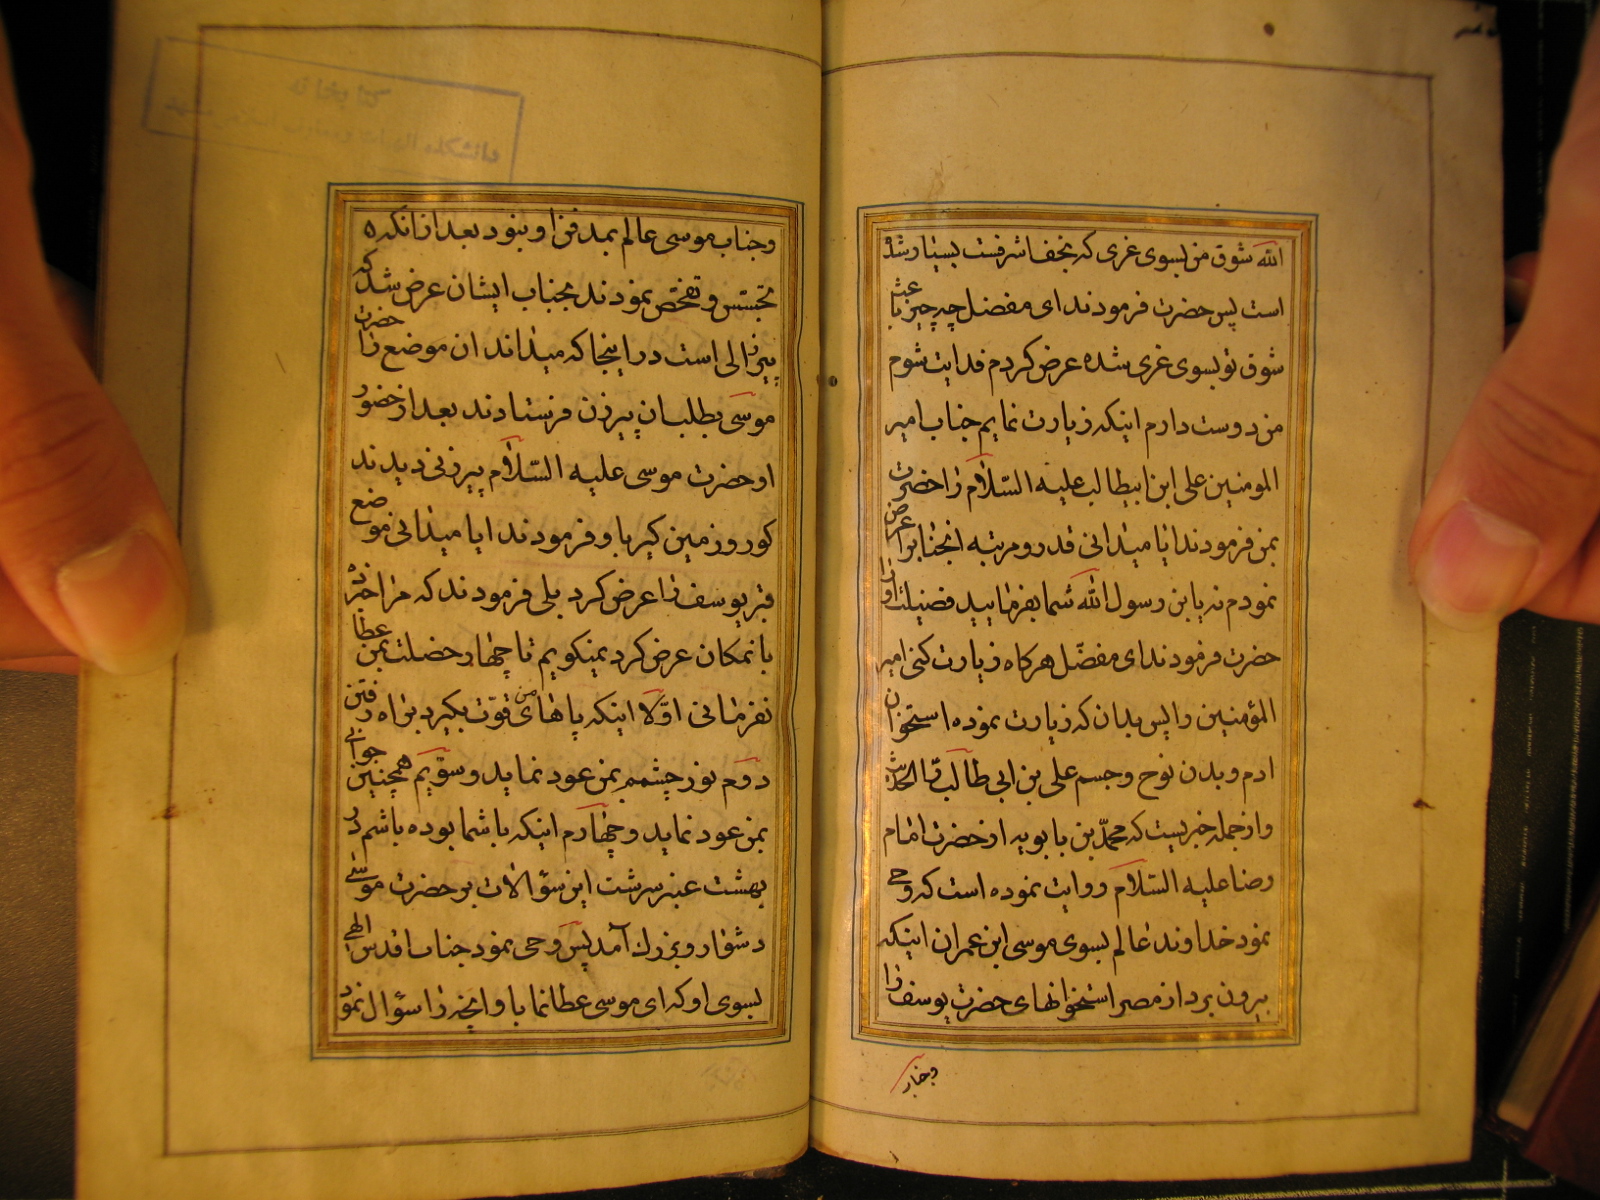 الله شوق من بسوی غری که نجف اشرفست بسیار شده
است پس حضرت فرمودند ای مفضل چه چیز باعث
شوق تو بسوی غری شده عرض کردم فدایت شوم
من دوست دارم اینکه زیارت نمایم جناب امیر
المومنین علی ابن ابیطالب علیه السّلام را حضرت
بمن فرمودند ایا میدانی قدر و مرتبه انجنابرا عرض
نمودم نه یا بن رسول الله شما بفرمایید فضیلت او را
حضرت فرمودند ای مفضّل هر کاه زیارت کنی امیر
المؤمنین را پس بدان که زیارت نموده استخوان
ادم و بدن نوح و جسم علی بن ابی طالب
و از جمله خبریست که محمّد بن بابویه از حضرت امام
رضا علیه السّلام روایت نموده است که وحی
نمود خداوند عالم بسوی موسی ابن عمران اینکه
بیرون برد از مصر استخوانهای حضرت یوسف را
و جناب
و جناب موسی عالم بمدفن او نبود بعد از انکه
تجسّس و تفحّص نمودند بجناب ایشان عرض شد که
پیرزالی است در اینجا که میداند ان موضع را حضرت
موسی بطلب ان پیرزن فرستادند بعد از حضور
او حضرت موسی علیه السّلام پیرزنی دیدند
کور و زمین کیر باو فرمودند ایا میدانی موضع
قبر یوسف را عرض کرد بلی فرمودند که مرا خبر ده
بانمکان عرض کرد نمیکویم تا چهار خصلت بمن عطا
نفرمائی اوّلا اینکه پاهای من قوّت بکیرد براه رفتن
دوم نور چشمم بمن عود نماید و سوّیم همچنین جوانی
بمن عود نماید و چهارم اینکه با شما بوده باشم در
بهشت عنبر سرشت این سؤالات بر حضرت موسی
دشوار و بزرك آمد پس وحی نمود جناب اقدس الهی
بسوی او که ای موسی عطا نما باو انچه را سؤال نمود